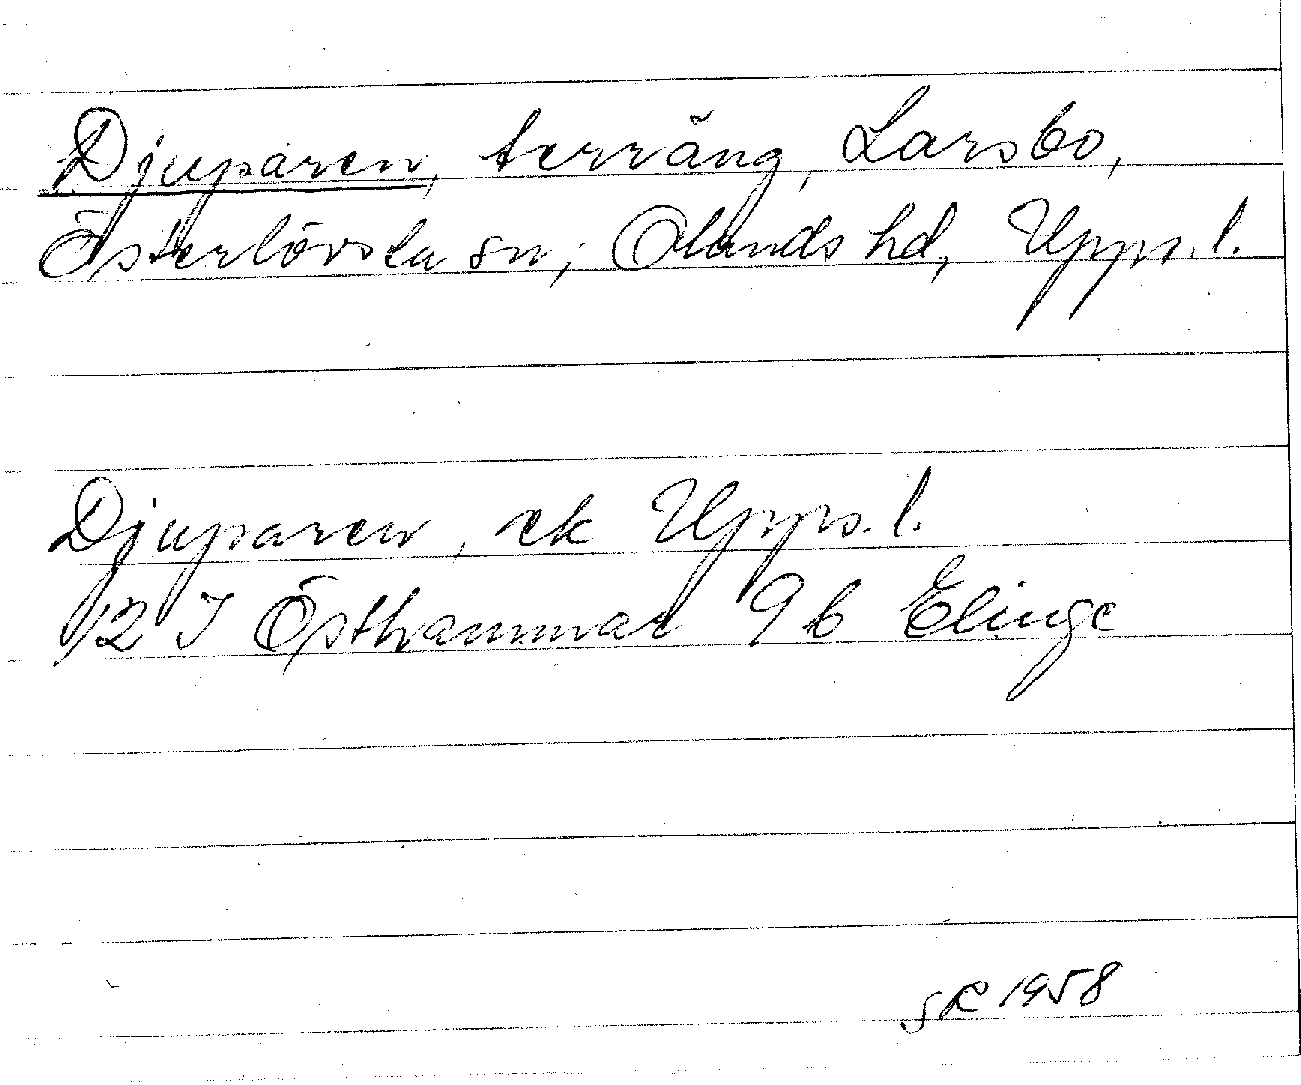 Djuparen, terräng, Larsbo,
Österlövsta sn; Olands hd, Upps. l.
Djuparen, ek Upps. l.
12 I Östhammar 9 b Elinge
SR 1958